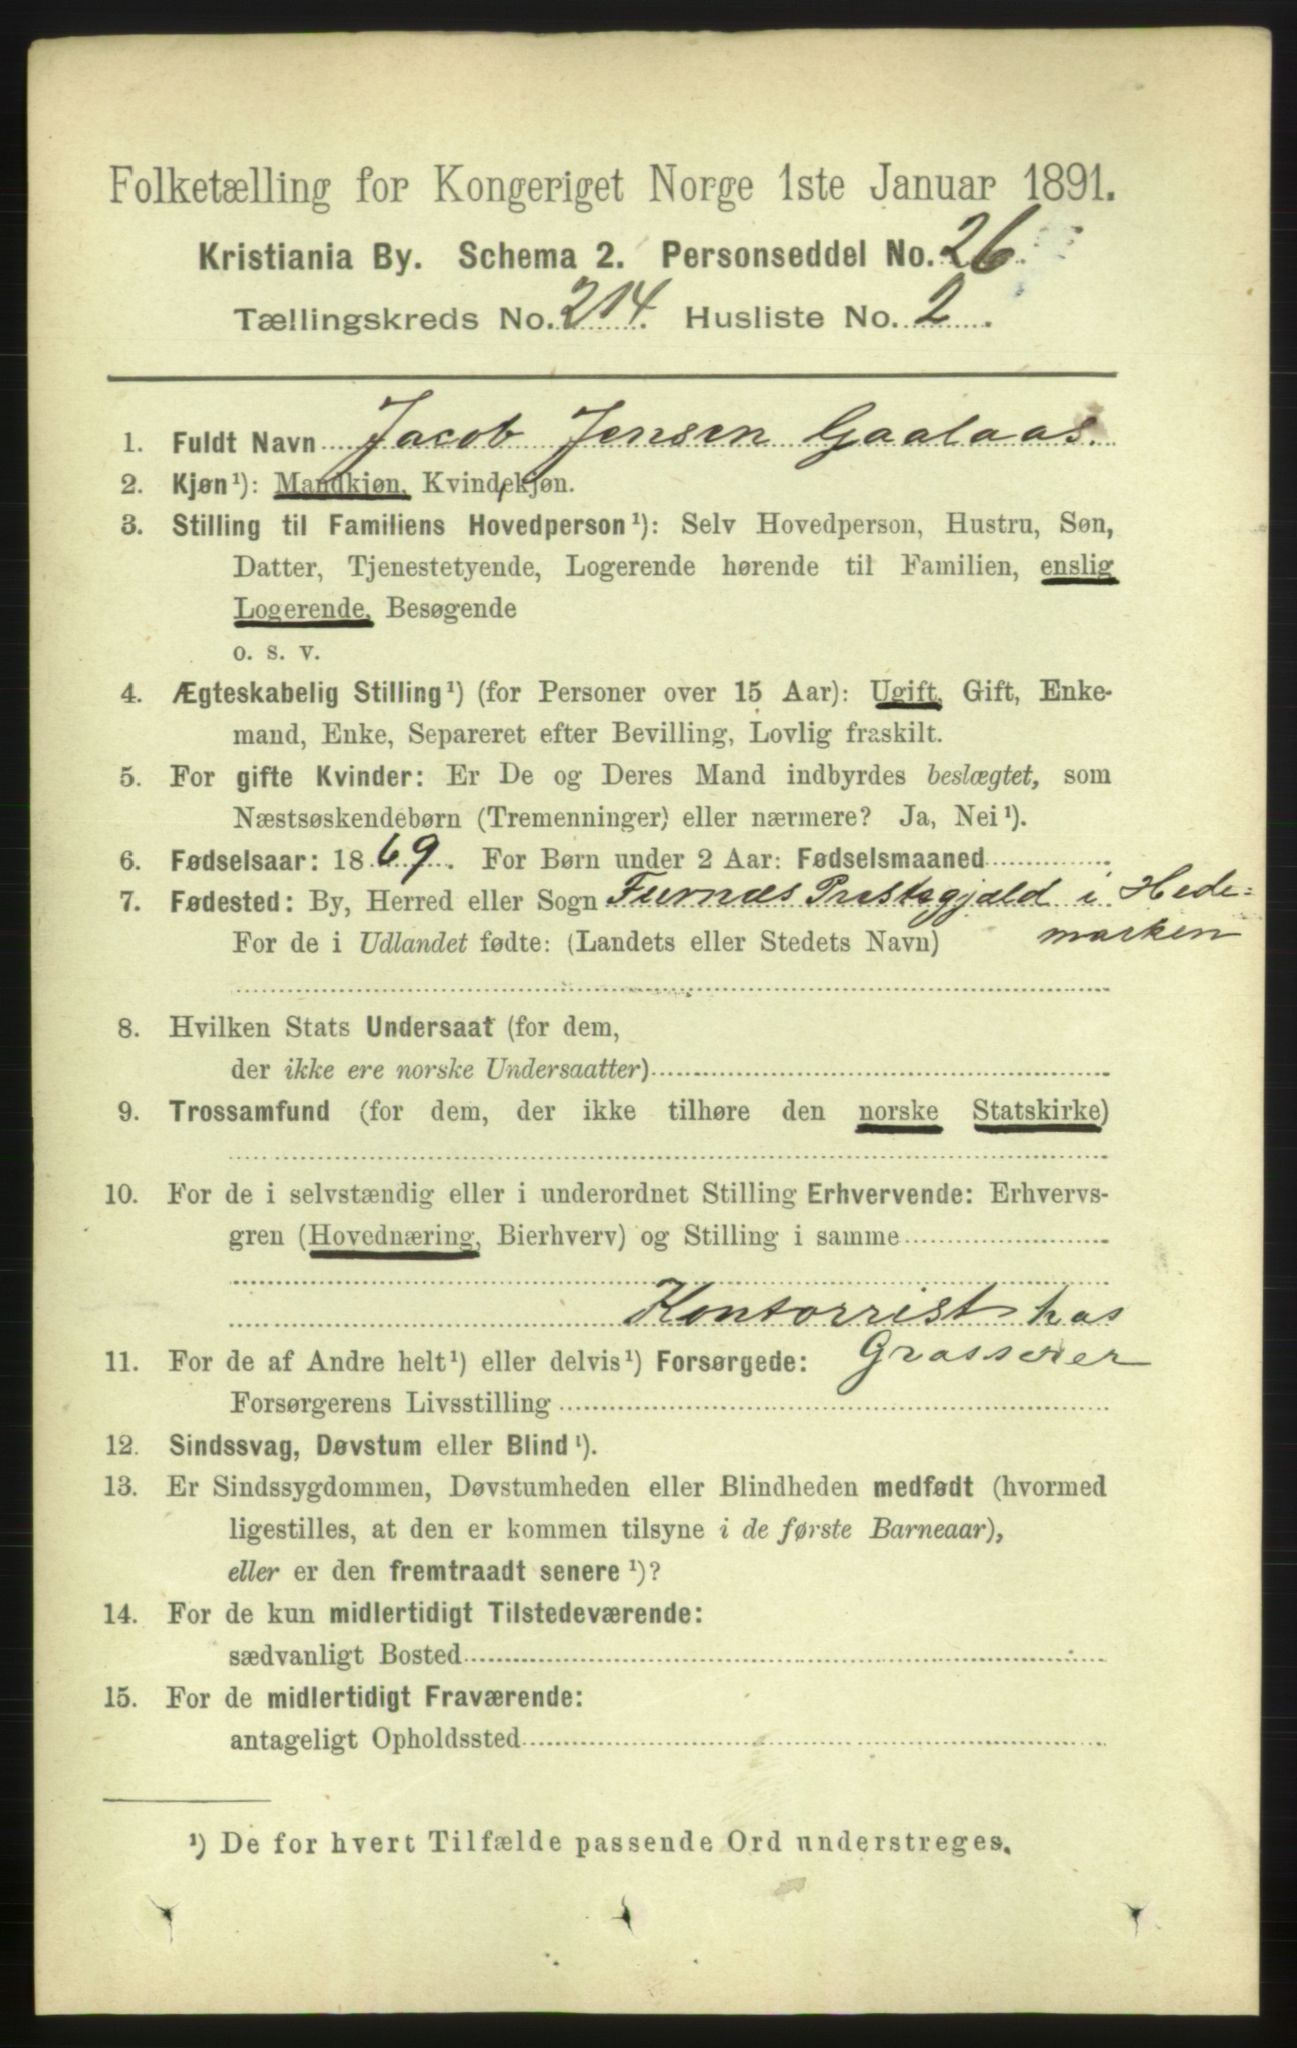 Folketælling for Kongeriget Norge 1ste Januar 1891.
Kristiania By. Schema 2. Personseddel No. 26.
Tællingskreds No. 214. Husliste No. 2.
1. Fuldt Navn Jacob Jensen Gaalaas.
2. Kjøn¹): Mandkjøn, Kvindekjøn.
3. Stilling til Familiens Hovedperson¹): Selv Hovedperson, Hustru, Søn,
Datter, Tjenestetyende, Logerende hørende til Familien, enslig
Logerende, Besøgende
o. s. v.
4. Ægteskabelig Stilling¹) (for Personer over 15 Aar): Ugift, Gift, Enke-
mand, Enke, Separeret efter Bevilling, Lovlig fraskilt.
5. For gifte Kvinder: Er De og Deres Mand indbyrdes beslægtet, som
Næstsøskendebørn (Tremenninger) eller nærmere? Ja, Nei¹).
6. Fødselsaar: 1869. For Børn under 2 Aar: Fødselsmaaned
7. Fødested: By, Herred eller Sogn Furnæs Præstegjæld i Hede=
For de i Udlandet fødte: (Landets eller Stedets Navn) marken
8. Hvilken Stats Undersaat (for dem,
der ikke ere norske Undersaatter)
9. Trossamfund (for dem, der ikke tilhøre den norske Statskirke)
10. For de i selvstændig eller i underordnet Stilling Erhvervende: Erhvervs-
gren (Hovednæring, Bierhverv) og Stilling i samme
Kontorrist hos
11. For de af Andre helt¹) eller delvis¹) Forsørgede: Grosserer
Forsørgerens Livsstilling
12. Sindssvag, Døvstum eller Blind¹).
13. Er Sindssygdommen, Døvstumheden eller Blindheden medfødt (hvormed
ligestilles, at den er kommen tilsyne i de første Barneaar),
eller er den fremtraadt senere¹)?
14. For de kun midlertidigt Tilstedeværende:
sædvanligt Bosted
15. For de midlertidigt Fraværende:
antageligt Opholdssted
¹) De for hvert Tilfælde passende Ord understreges.